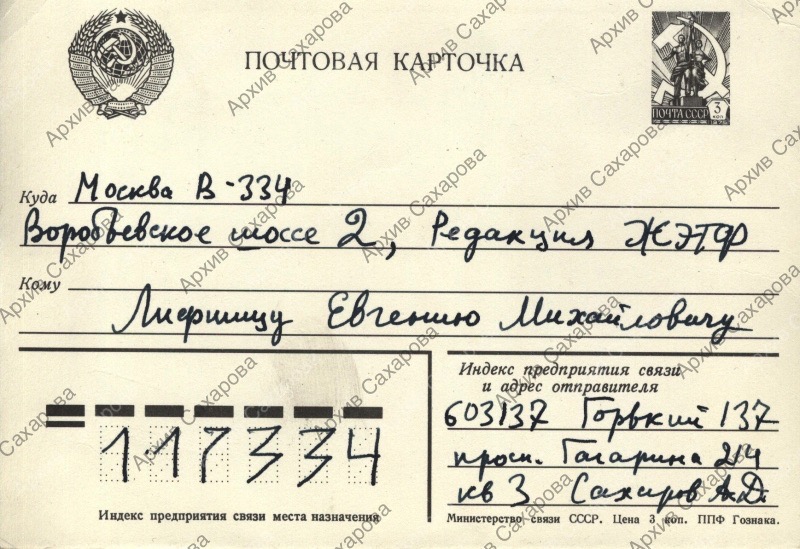 ПОЧТОВАЯ КАРТОЧКА
ПОЧТА СССР 3 коп
Куда Москва В-334
Воробьевское шоссе 2, Редакция ЖЭТФ
Кому
Лифшицу Евгению Михайловичу
117334
Индекс предприятия связи места назначения
Индекс предприятия связи
и адрес отправителя
603137 Горький 137
просп. Гагарина 214
кв 3 Сахаров А.Д.
Министерство связи СССР. Цена 3 коп. ППФ Гознака.
Архив Сахарова